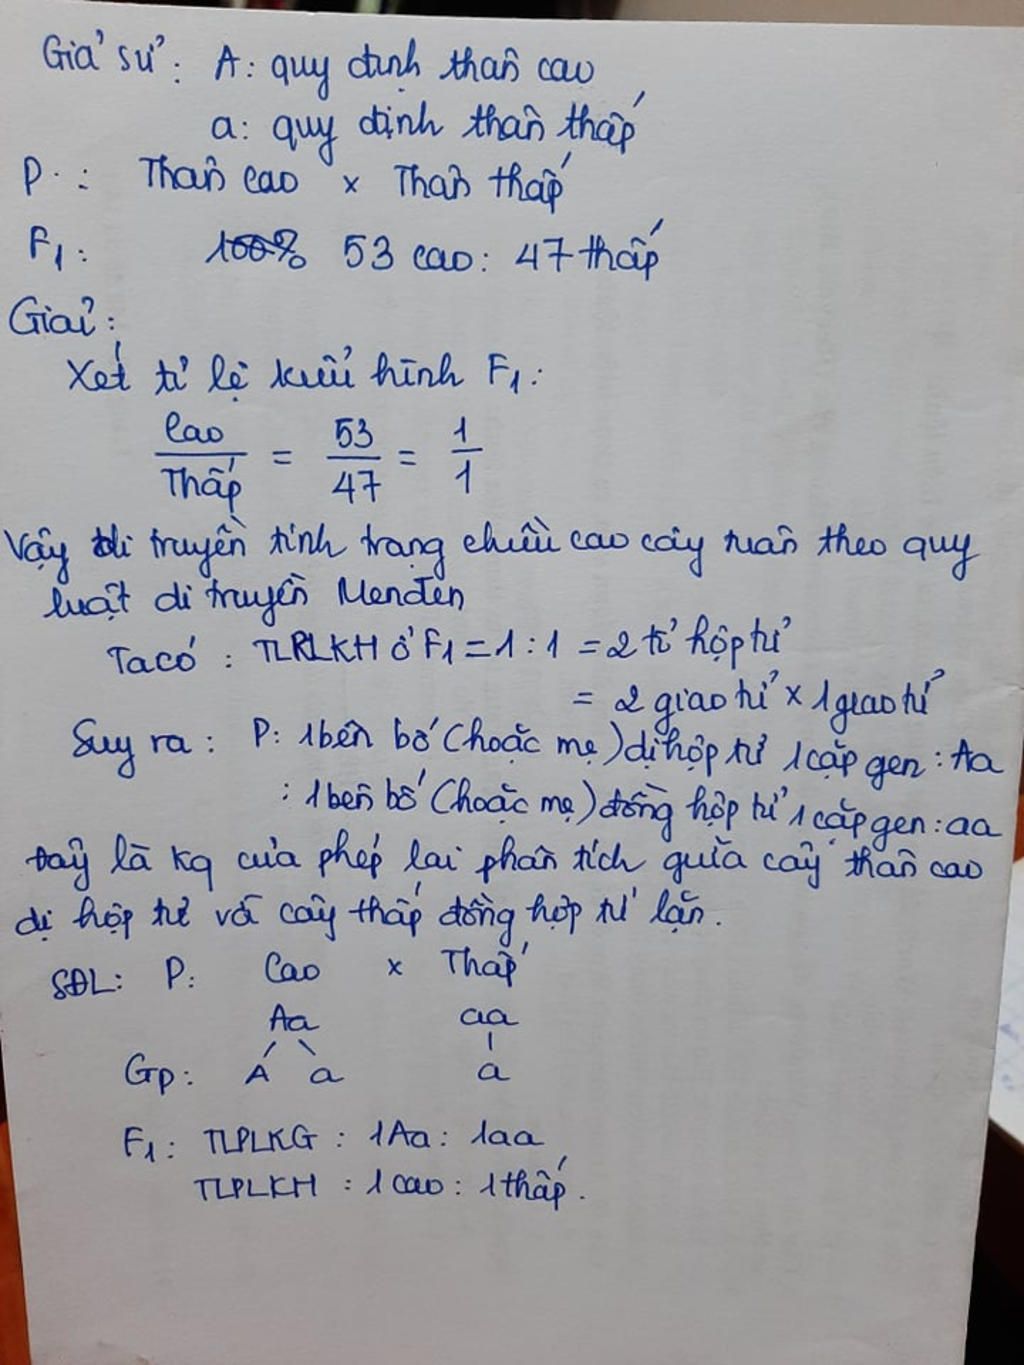 Giả sử: A: quy định thân cao
a: quy định thân thấp
P: Thân cao x Thân thấp
F1: 100% 53 cao: 47 thấp
Giải:
Xét tỉ lệ kiểu hình F1:
Cao / Thấp = 53 / 47 = 1 / 1
Vậy di truyền tính trạng chiều cao cây tuân theo quy
luật di truyền Menđen
Ta có: TLPLKH ở F1 = 1 : 1 = 2 tổ hợp tử
= 2 giao tử x 1 giao tử
Suy ra: P: 1 bên bố (hoặc mẹ) dị hợp tử 1 cặp gen: Aa
: 1 bên bố (hoặc mẹ) đồng hợp tử 1 cặp gen: aa
Đây là kq của phép lai phân tích giữa cây thân cao
dị hợp tử và cây thấp đồng hợp tử lặn.
SĐL: P: Cao x Thấp
Aa aa
Gp: A a a
F1: TLPLKG: 1Aa: 1aa
TLPLKH: 1 cao: 1 thấp.